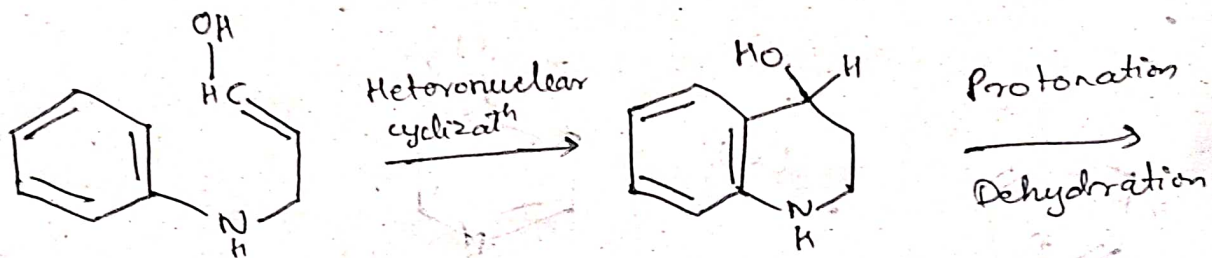 OH
HC
N
H
Heteronuclear
cyclizatⁿ
HO
H
N
H
Protonation
Dehydration